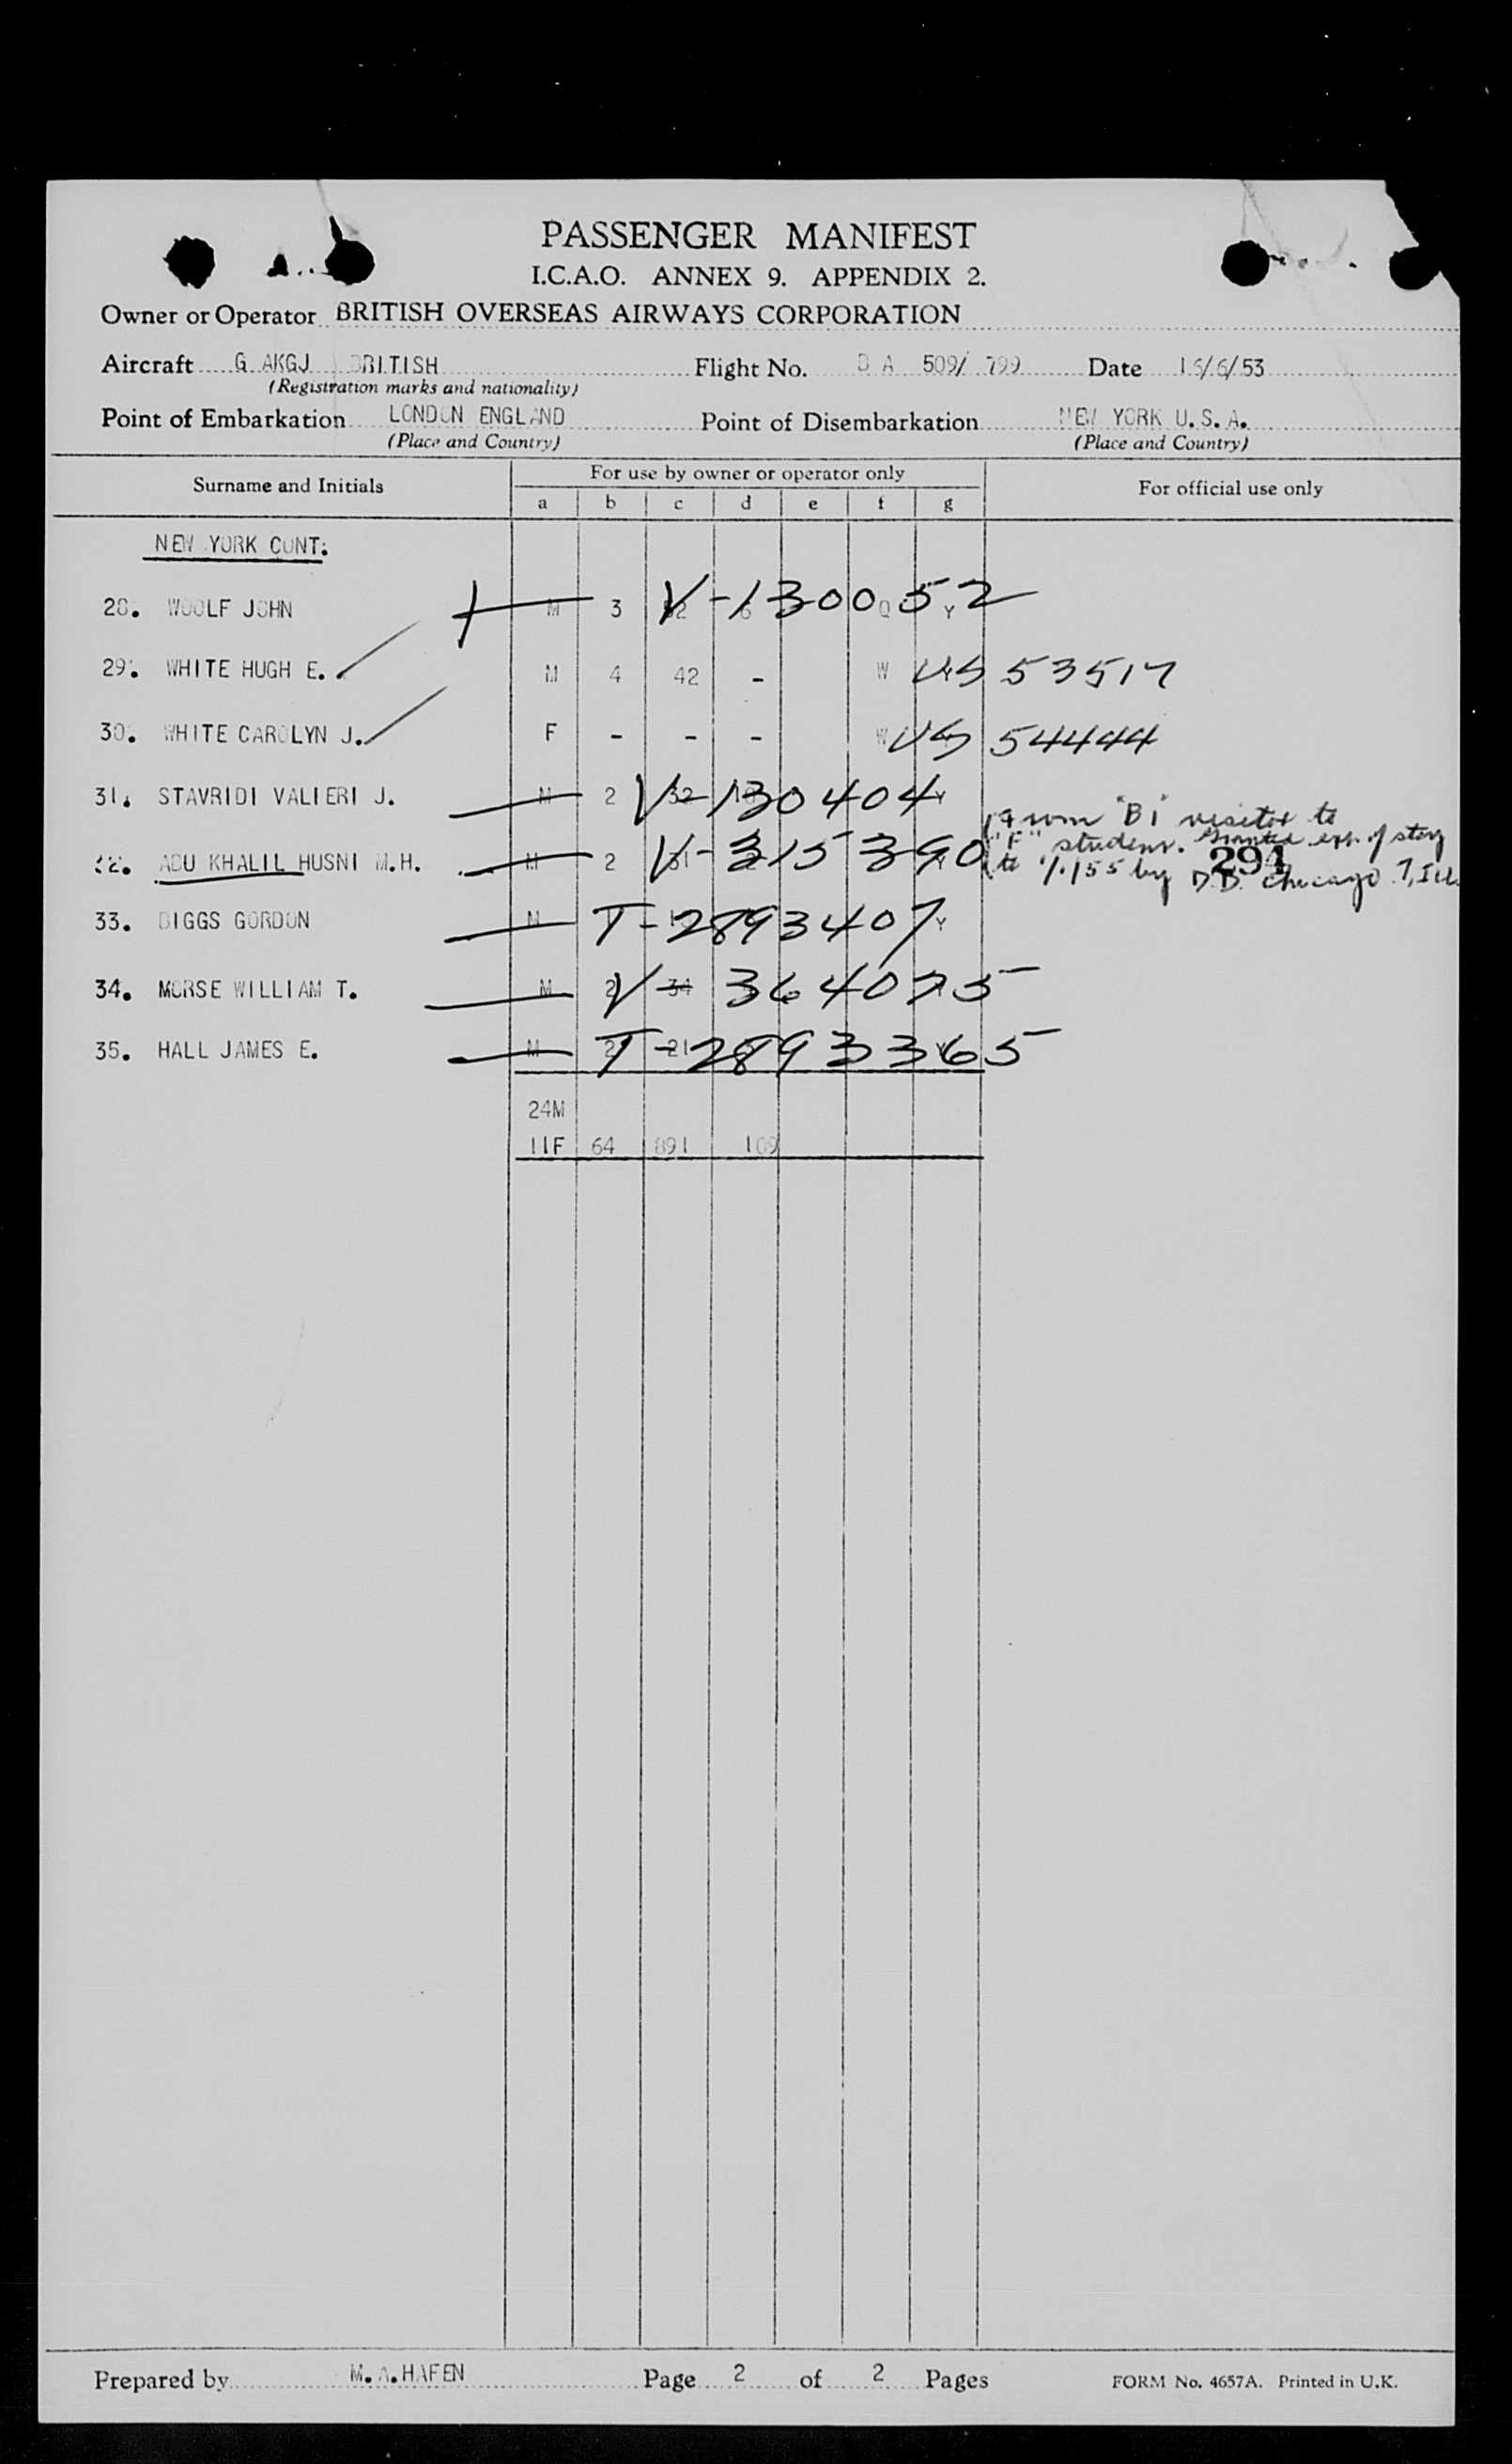 PASSENGER MANIFEST
I.C.A.O. ANNEX 9. APPENDIX 2.
Owner or Operator BRITISH OVERSEAS AIRWAYS CORPORATION
Aircraft G AKGJ BRITISH Flight No. B A 509/ 799 Date 16/6/53
(Registration marks and nationality)
Point of Embarkation LONDON ENGLAND Point of Disembarkation NEW YORK U.S.A.
(Place and Country) (Place and Country)
Surname and Initials For use by owner or operator only For official use only
a b c d e f g
NEW YORK CONT:
28. WOOLF JOHN M 3 V-1300052 Y
29. WHITE HUGH E. M 4 42 - W US 53517
30. WHITE CAROLYN J. F - - - W US 54444
31. STAVRIDI VALIERI J. M 2 32 V-130404 Y
32. ABU KHALIL HUSNI M.H. M 2 V-315390 "B1" visitor to
"F" student. Granted ext. of stay
to by D.D. Chicago 7, Ill.
294
33. BIGGS GORDON M T-2893407 Y
34. MORSE WILLIAM T. M 2 34 V-364075
35. HALL JAMES E. M 2 21 T-2893365 Y
24M
11F 64 891 109
Prepared by M.A.HAFEN Page 2 of 2 Pages FORM No. 4657A. Printed in U.K.